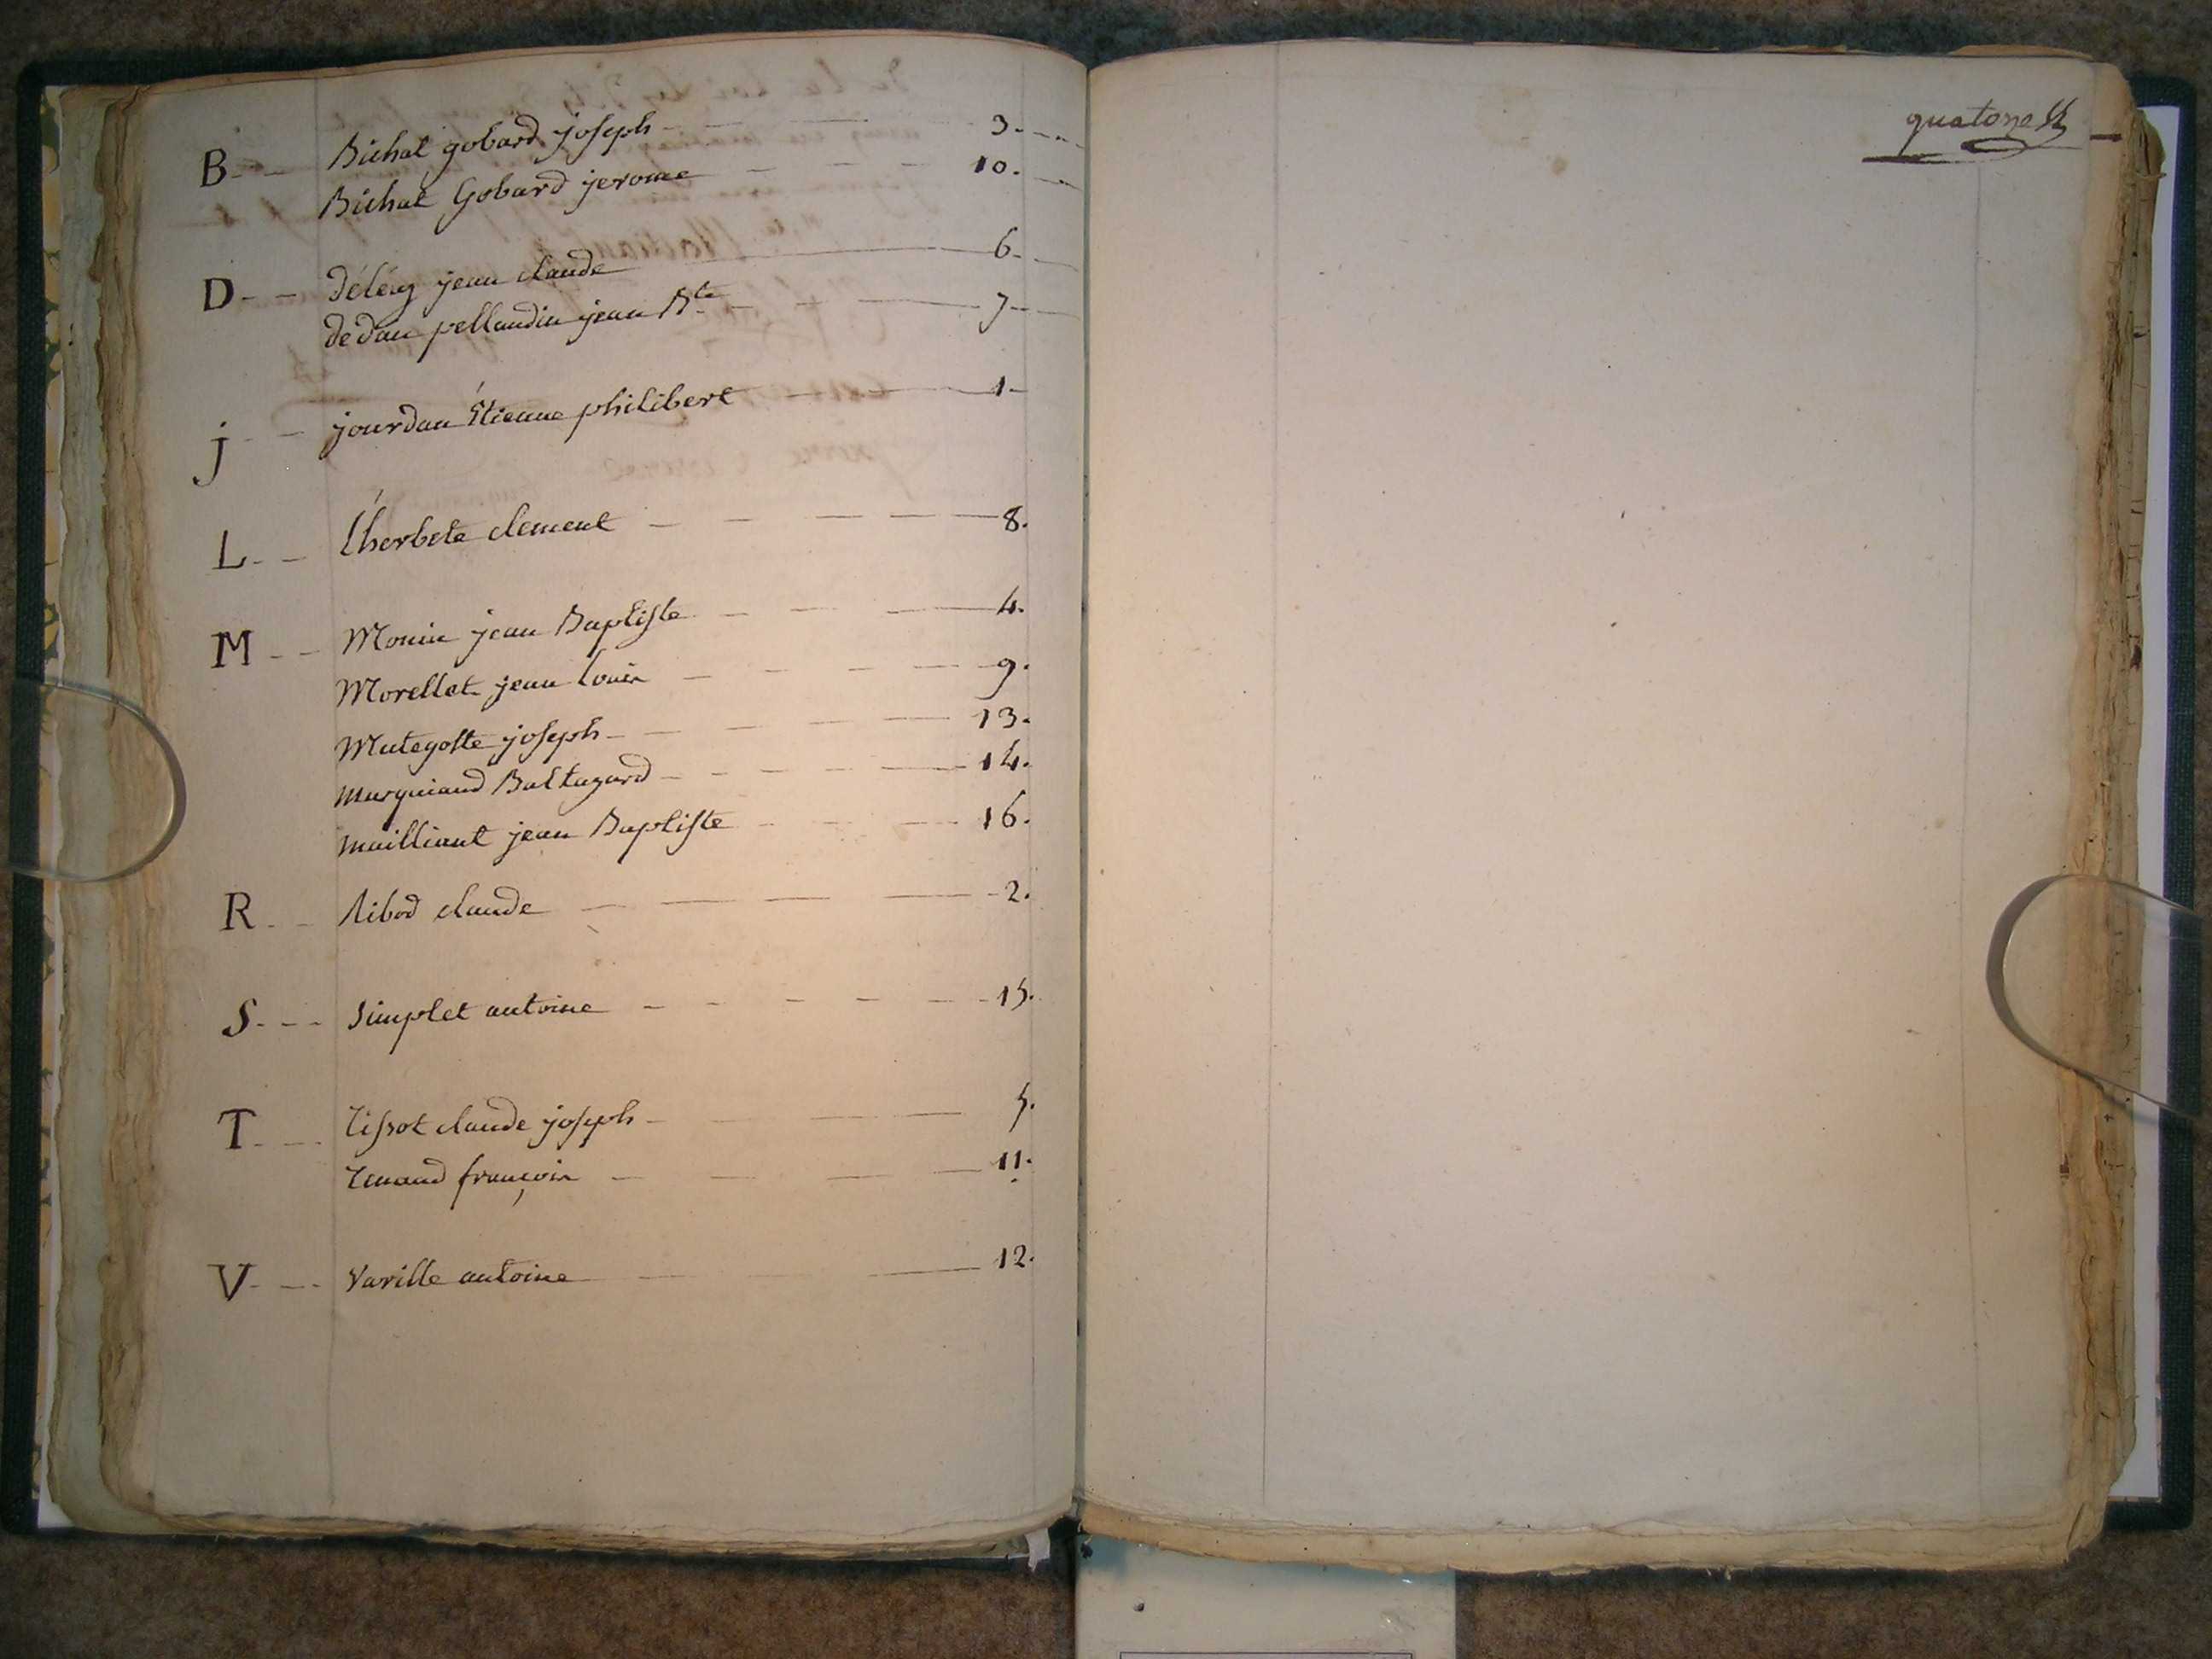 B - - Bichat gobard joseph - - - 3.
Bichat Gobard jerome - - - 10.
D - - déléaz jean claude 6.
dedan pellaudin jean Bte - - - 7
j - - jourdan Étienne philibert - - 1
L - - l'herbete clement - - - - 8.
M - - Monin jean Baptiste - - - 4.
Morellet jean louis - - - - 9.
Mategotte joseph - - - - 13.
marguiand Baltazard - - - - 14.
mailliant jean Baptiste - - - 16.
R - - Ribod claude - - - - 2.
S - - - Simplet antoine - - - - 15.
T - - - Tissot claude joseph - - - 5.
Tenand françois - - - 11.
V - - - Varille antoine - - - 12.
quatorze